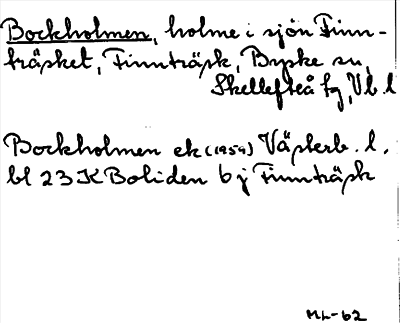 Bockholmen, holme i sjön Finn-
träsket, Finnträsk, Byske sn,
Skellefteå tg, Vb. l
Bockholmen ek (1959) Västerb. l.
bl 23 K Boliden 6 j Finnträsk
ML-62